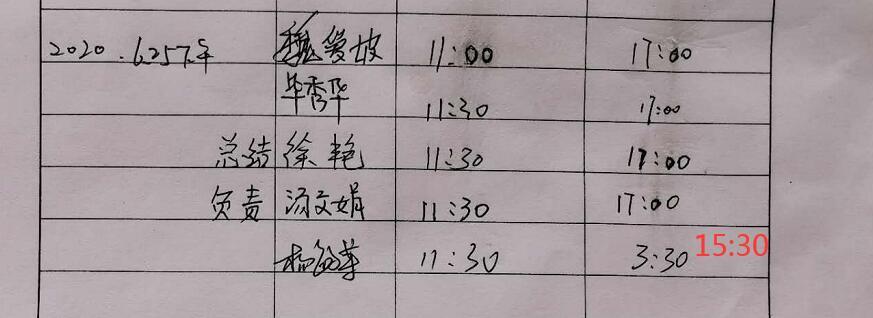 2020.6.25 魏爱坡 11:00 17:00
毕秀华 11:30 17:00
总结 徐艳 11:30 17:00
负责 汤文娟 11:30 17:00
11:30 3:30 15:30